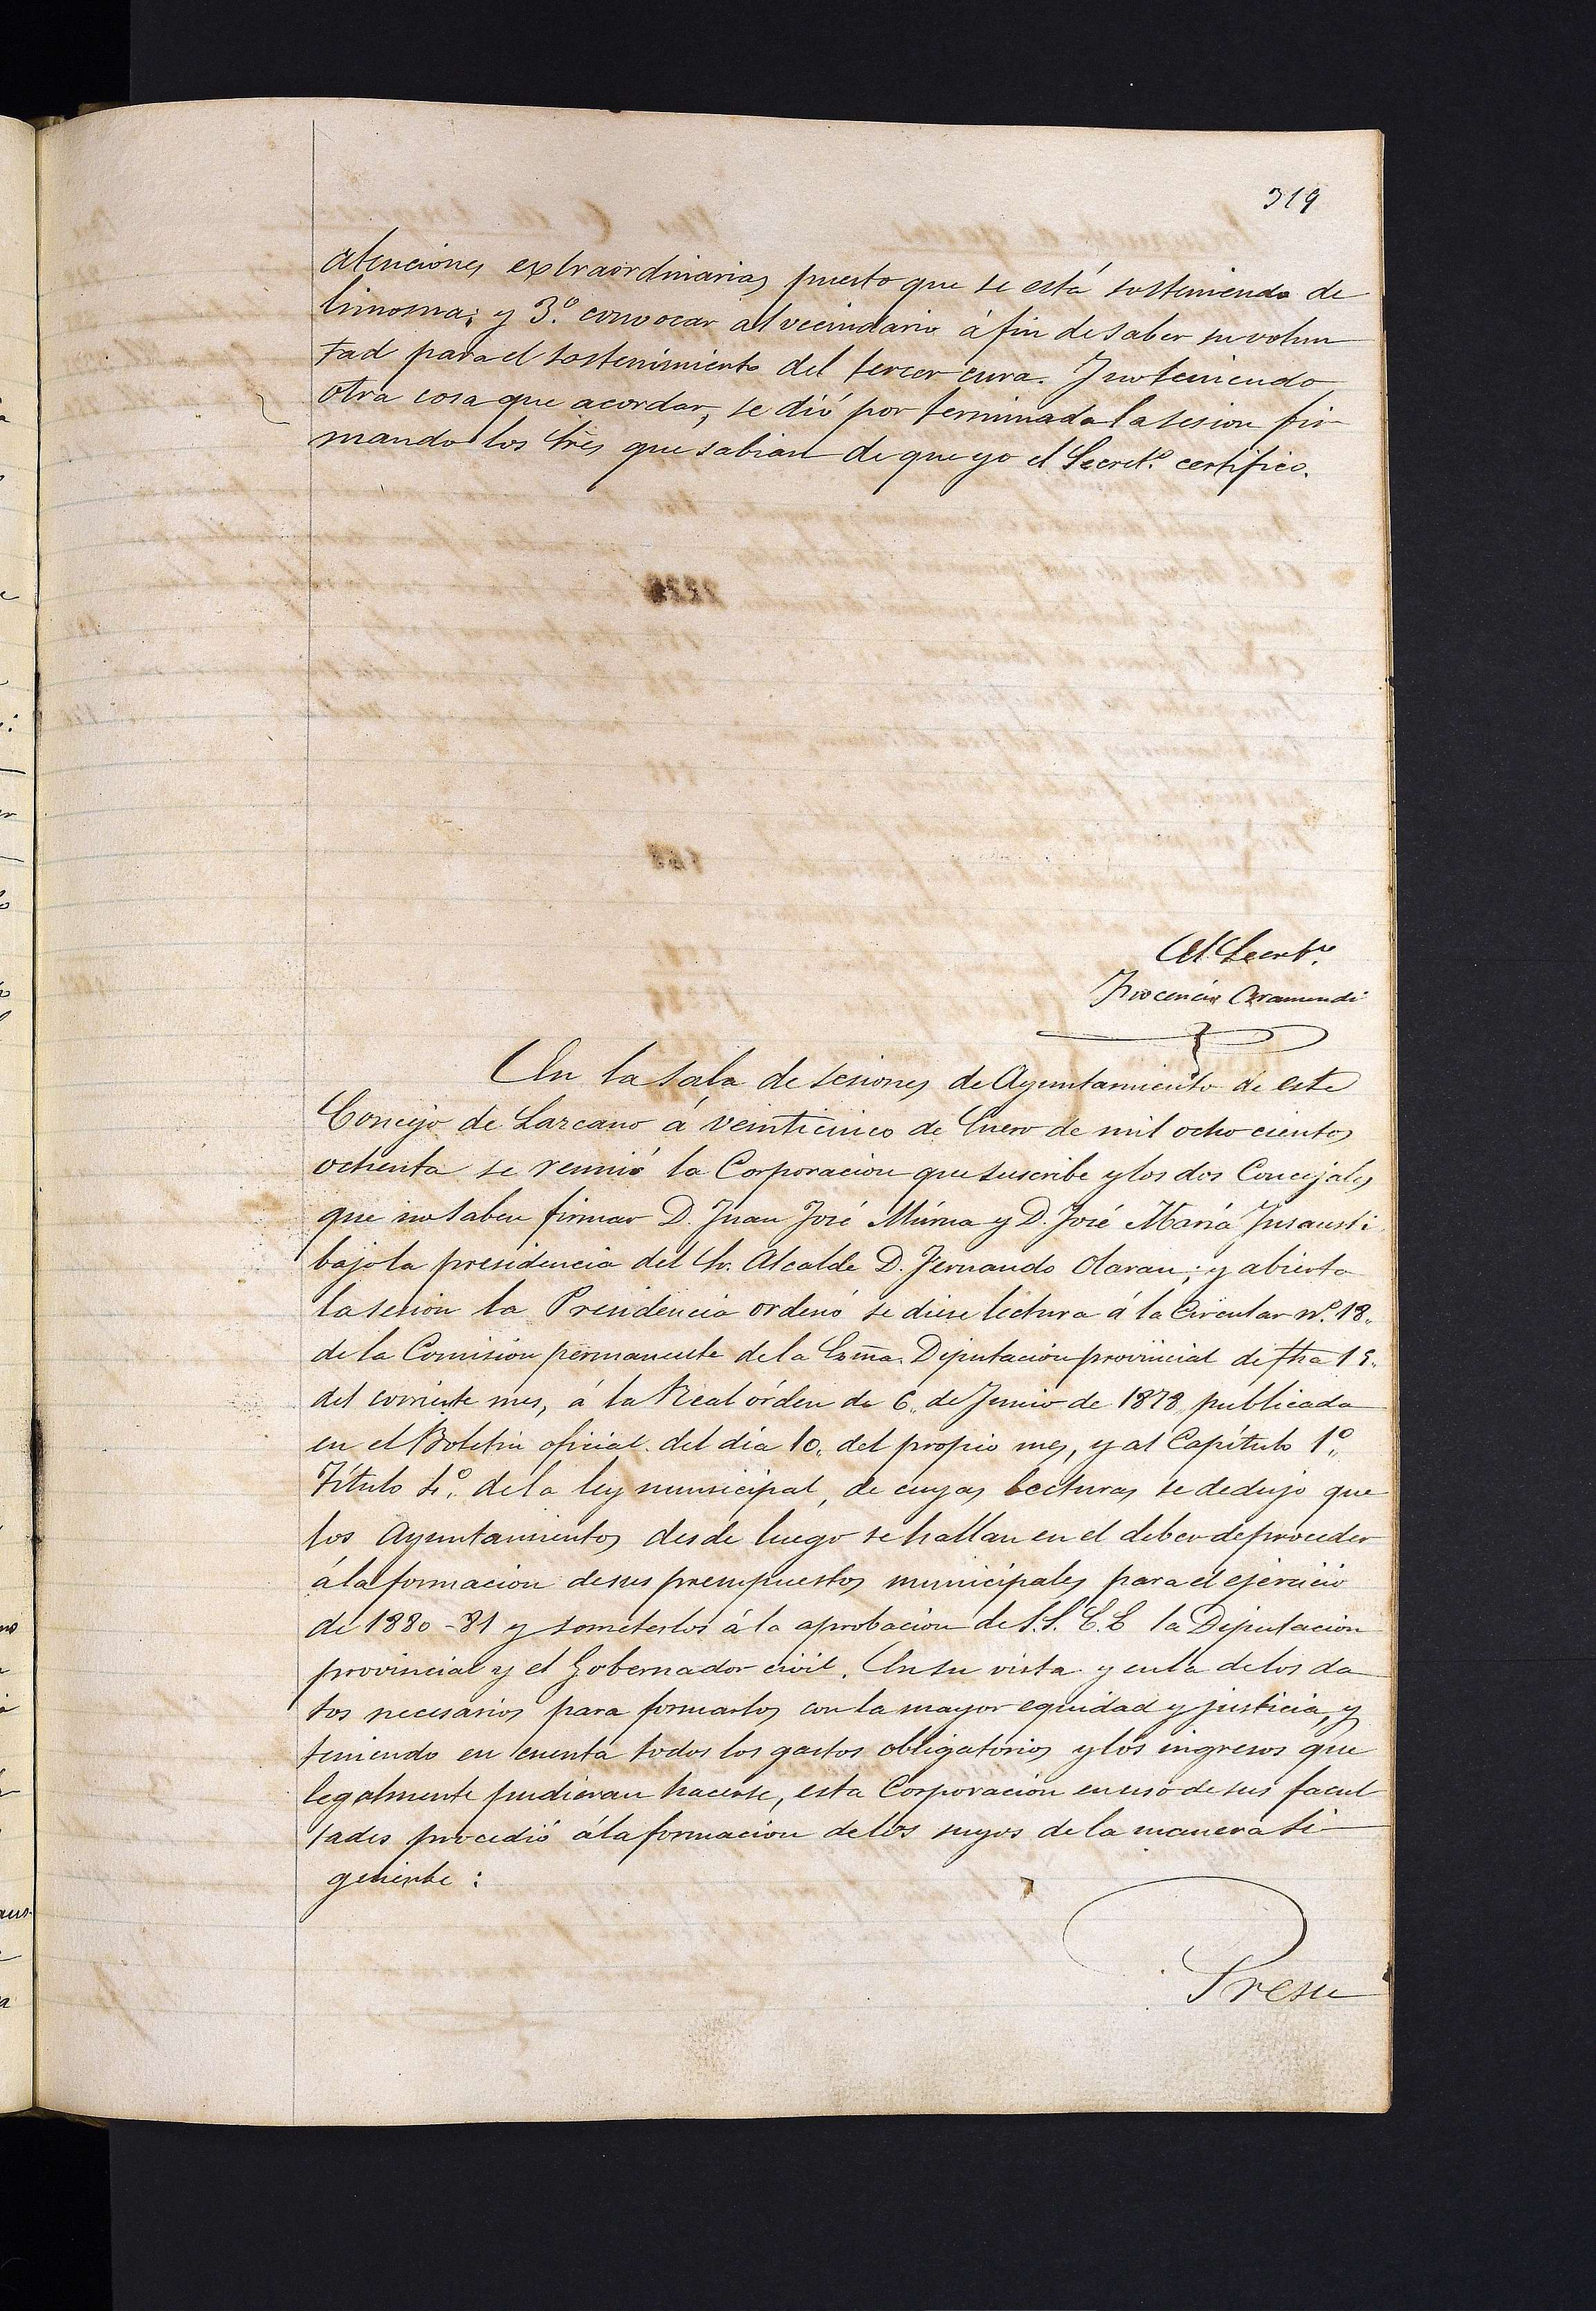 319
atenciones extraordinarias puesto que se está sosteniendo de
limosna; y 3.º convocar al vecindario á fin de saber su volun
tad para el sostenimiento del tercer cura. Y no teniendo
otra cosa que acordar, se dió por terminada la sesion fir-
mando los tres que sabian de que yo el Secret.º certifico.
El Secret.º
Inocencio Aramendi
En la sala de sesiones de Ayuntamiento de este
Concejo de Lazcano á veinticinco de Enero de mil ocho cientos
ochenta se reunió la Corporacion que suscribe y los dos Concejales
que no saben firmar D. Juan José Múrua y D. José María Insausti
bajo la presidencia del Sr. Alcalde D. Fernando Olaran; y abierta
la sesion la Presidencia ordenó se diese lectura á la Circular n.º 18.
de la Comision permanente de la Exma. Diputacion provincial de fha 15.
del corriente mes, á la Real órden de 6. de Junio de 1878 publicada
en el Boletin oficial del dia 10. del propio mes, y al Capítulo 1.º
Título 4.º de la ley municipal, de cuyas lecturas se dedujo que
los Ayuntamientos desde luego se hallan en el deber de proceder
á la formacion de sus presupuestos municipales para el ejercicio
de 1880-81 y someterlos á la aprobacion de S.S. E.E la Diputacion
provincial y el Gobernador civil. En su vista y en la de los da
tos necesarios para formarlos con la mayor equidad y justicia, y
teniendo en cuenta todos los gastos obligatorios y los ingresos que
legalmente pudieran hacerse, esta Corporacion en uso de sus facul
tades procedió á la formacion de los suyos de la manera si-
geniente:
Presu